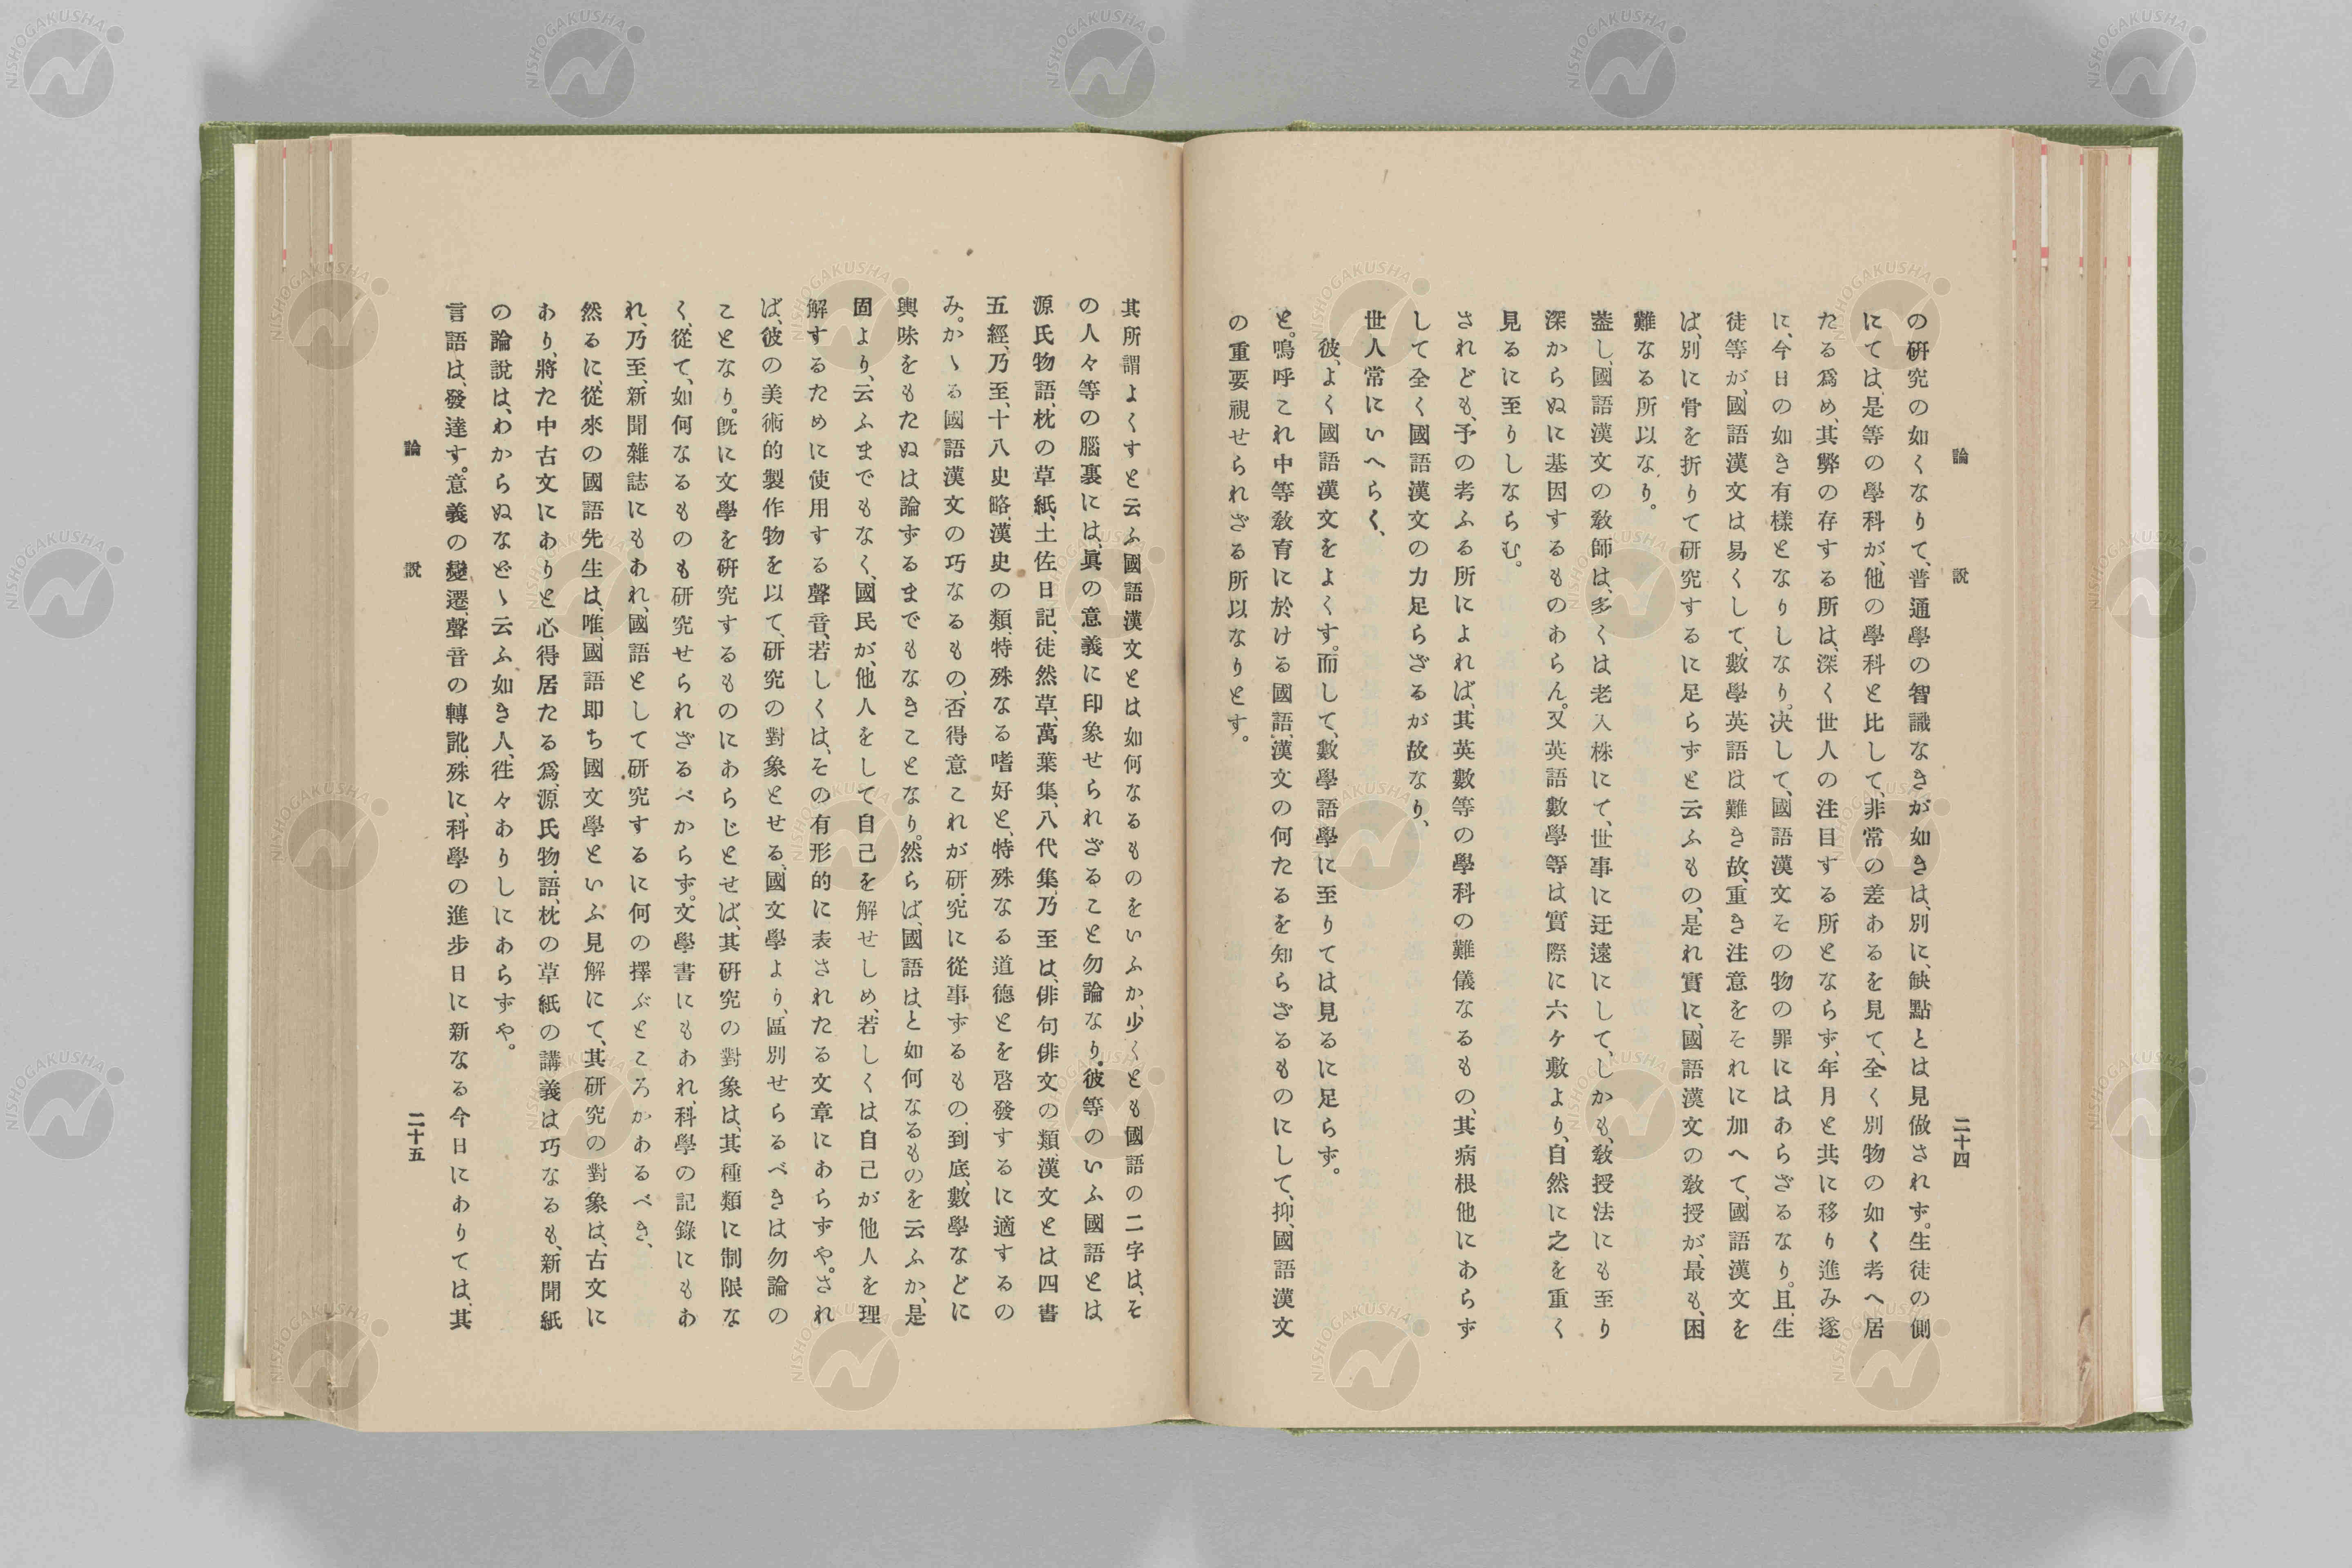 論 說 二十四
の研究の如くなりて、普通學の智識なきが如きは、別に、缺點とは見做されず。生徒の側
にては、是等の學科が、他の學科と比して、非常の差あるを見て、全く別物の如く考へ居
たる爲め、其弊の存する所は、深く世人の注目する所とならず、年月と共に移り進み遂
に、今日の如き有樣となりしなり。决して、國語漢文その物の罪にはあらざるなり。且、生
徒等が、國語漢文は易くして、數學英語は難き故、重き注意をそれに加へて、國語漢文を
ば、別に骨を折りて研究するに足らずと云ふもの、是れ實に、國語漢文の敎授が、最も、困
難なる所以なり。
葢し、國語漢文の敎師は、多くは老人株にて、世事に迂遠にして、しかも、敎授法にも至り
深からぬに基因するものあらん。又英語數學等は實際に六ケ敷より、自然に之を重く
見るに至りしならむ。
されども、予の考ふる所によれば、其英數等の學科の難儀なるもの、其病根他にあらず
して全く國語漢文の力足らざるが故なり、
世人常にいへらく、
彼、よく國語漢文をよくす。而して、數學語學に至りては見るに足らず。
と。嗚呼これ中等敎育に於ける國語、漢文の何たるを知らざるものにして、抑、國語漢文
の重要視せられざる所以なりとす。
其所謂よくすと云ふ國語漢文とは如何なるものをいふか、少くとも國語の二字は、そ
の人々等の腦裏には、眞の意義に印象せられざること勿論なり。彼等のいふ國語とは
源氏物語、枕の草紙、土佐日記、徒然草、萬葉集、八代集、乃至は、俳句俳文の類、漢文とは四書
五經、乃至、十八史略、漢史の類、特殊なる嗜好と、特殊なる道德とを啓發するに適するの
み。かゝる國語漢文の巧なるもの、否得意これが研究に從事するもの、到底、數學などに
興味をもたぬは論ずるまでもなきことなり。然らば、國語は、と如何なるものを云ふか、是
固より、云ふまでもなく、國民が、他人をして自己を解せしめ、若しくは自己が他人を理
解するために使用する聲音、若しくは、その有形的に表されたる文章にあらずや。され
ば、彼の美術的製作物を以て、研究の對象とせる、國文學より、區別せらるべきは勿論の
ことなり。旣に文學を研究するものにあらじとせば、其研究の對象は、其種類に制限な
く、從て、如何なるものも研究せられざるべからず。文學書にもあれ、科學の記錄にもあ
れ、乃至、新聞雜誌にもあれ、國語として研究するに何の擇ぶところかあるべき、
然るに、從來の國語先生は、唯、國語即ち國文學といふ見解にて、其研究の對象は、古文に
あり、將た中古文にありと心得居たる爲、源氏物語、枕の草紙の講義は巧なるも、新聞紙
の論說は、わからぬなどゝ云ふ如き人、徃々ありしにあらずや。
言語は、發達す。意義の變遷、聲音の轉訛、殊に、科學の進步日に新なる今日にありては、其
論 說 二十五
NISHOGAKUSHA